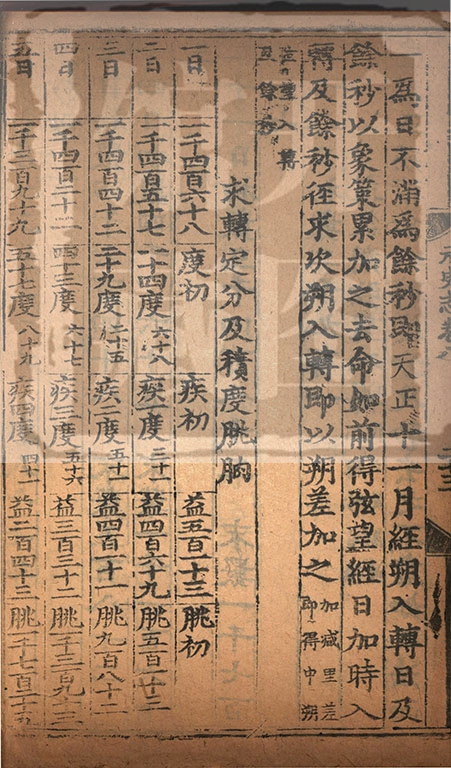 元史志卷八
一爲日不滿爲餘秒即天正十一月經朔入轉日及
餘秒以象策累加之去命如前得弦望經日加時入
轉及餘秒徑求次朔入轉即以朔差加之加減里差即得中朔
弦望入轉及餘秒
求轉定分及積度朓朒
一日 一千四百六十八 度初 疾初 益五百一十三 朓初
二日 一千四百五十七 一十四度六十八 疾一度三十一 益四百六十九 朓五百一十三
三日 一千四百四十二 二十九度二十五 疾二度五十一 益四百一十一 朓九百八十二
四日 一千四百二十一 四十三度六十七 疾三度五十六 益三百三十二 朓一千三百九十三
五日 一千三百九十九 五十七度八十九 疾四度四十一 益二百四十三 朓一千七百二十五